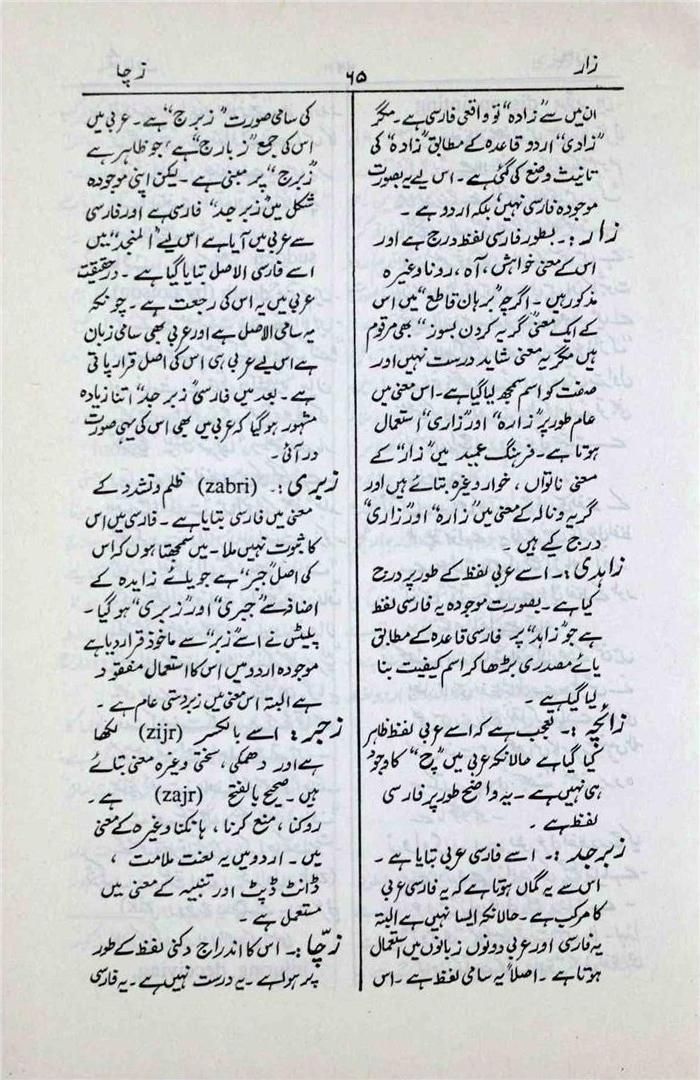 زار
۶۵
زچا
ان میں سے ”زادہ“ تو واقعی فارسی ہے۔ مگر
”زادی“ اردو قاعدہ کے مطابق ”زادہ“ کی
تانیث وضع کی گئی ہے۔ اس لیے یہ بصورت
موجودہ فارسی نہیں بلکہ اردو ہے۔
زار :۔ بطور فارسی لفظ درج ہے اور
اس کے معنی خواہش، آہ، رونا وغیرہ
مذکور ہیں۔ اگرچہ ”برہان قاطع“ میں اس
کے ایک معنی ”گریہ کردن بسوز“ بھی مرقوم
ہیں مگر یہ معنی شاید درست نہیں اور
صفت کو اسم سمجھ لیا گیا ہے۔ اس معنی میں
عام طور پر ”زارہ“ اور ”زاری“ استعمال
ہوتا ہے۔ فرہنگ عمید میں ”زار“ کے
معنی ناتواں، خوار وغیرہ بتائے ہیں اور
گریہ و نالہ کے معنی میں ”زارہ“ اور ”زاری“
درج کیے ہیں۔
زاہدی :۔ اسے عربی لفظ کے طور پر درج
کیا ہے۔ بصورت موجودہ یہ فارسی لفظ
ہے جو ”زاہد“ پر فارسی قاعدہ کے مطابق
یائے مصدری بڑھا کر اسم کیفیت بنا
لیا گیا ہے۔
زائچہ :۔ تعجب ہے کہ اسے عربی لفظ ظاہر
کیا گیا ہے حالانکہ عربی میں ”چ“ کا وجود
ہی نہیں ہے۔ یہ واضح طور پر فارسی
لفظ ہے۔
زبرجد :۔ اسے فارسی عربی بتایا ہے۔
اس سے یہ گماں ہوتا ہے کہ یہ فارسی عربی
کا مرکب ہے۔ حالانکہ ایسا نہیں ہے البتہ
یہ فارسی اور عربی دونوں زبانوں میں استعمال
ہوتا ہے۔ اصلاً یہ سامی لفظ ہے۔ اس
کی سامی صورت ”زبرج“ ہے۔ عربی میں
اس کی جمع ”زبارج“ ہے جو ظاہر ہے
”زبرج“ پر مبنی ہے۔ لیکن اپنی موجودہ
شکل میں ”زبرجد“ فارسی ہے اور فارسی
سے عربی میں آیا ہے اس لیے ”المنجد“ میں
اسے فارسی الاصل بتایا گیا ہے۔ درحقیقت
عربی میں یہ اس کی رجعت ہے۔ چونکہ
یہ سامی الاصل ہے اور عربی بھی سامی زبان
ہے اس لیے عربی ہی اس کی اصل قرار پاتی
ہے۔ بعد میں فارسی ”زبرجد“ اتنا زیادہ
مشہور ہو گیا کہ عربی میں بھی اس کی یہی صورت
در آئی۔
زبری :۔ (zabri) ظلم و تشدد کے
معنی میں فارسی بتایا ہے۔ فارسی میں اس
کا ثبوت نہیں ملا۔ میں سمجھتا ہوں کہ اس
کی اصل ”جبر“ ہے جو یائے زایدہ کے
اضافہ سے ”جبری“ اور ”زبری“ ہو گیا۔
پلیٹس نے اسے ”زبر“ سے ماخوذ قرار دیا ہے
موجودہ اردو میں اس کا استعمال مفقود
ہے البتہ اس معنی میں زبردستی عام ہے۔
زجر : اسے بالکسر (zijr) لکھا
ہے اور دھمکی، سختی وغیرہ معنی بتائے
ہیں۔ صحیح بالفتح (zajr) ہے۔
روکنا، منع کرنا، ہانکنا وغیرہ کے معنی
میں۔ اردو میں یہ لعنت ملامت،
ڈانٹ ڈپٹ اور تنبیہ کے معنی میں
مستعمل ہے۔
زچّا :۔ اس کا اندراج دکنی لفظ کے طور
پر ہوا ہے۔ یہ درست نہیں ہے۔ یہ فارسی